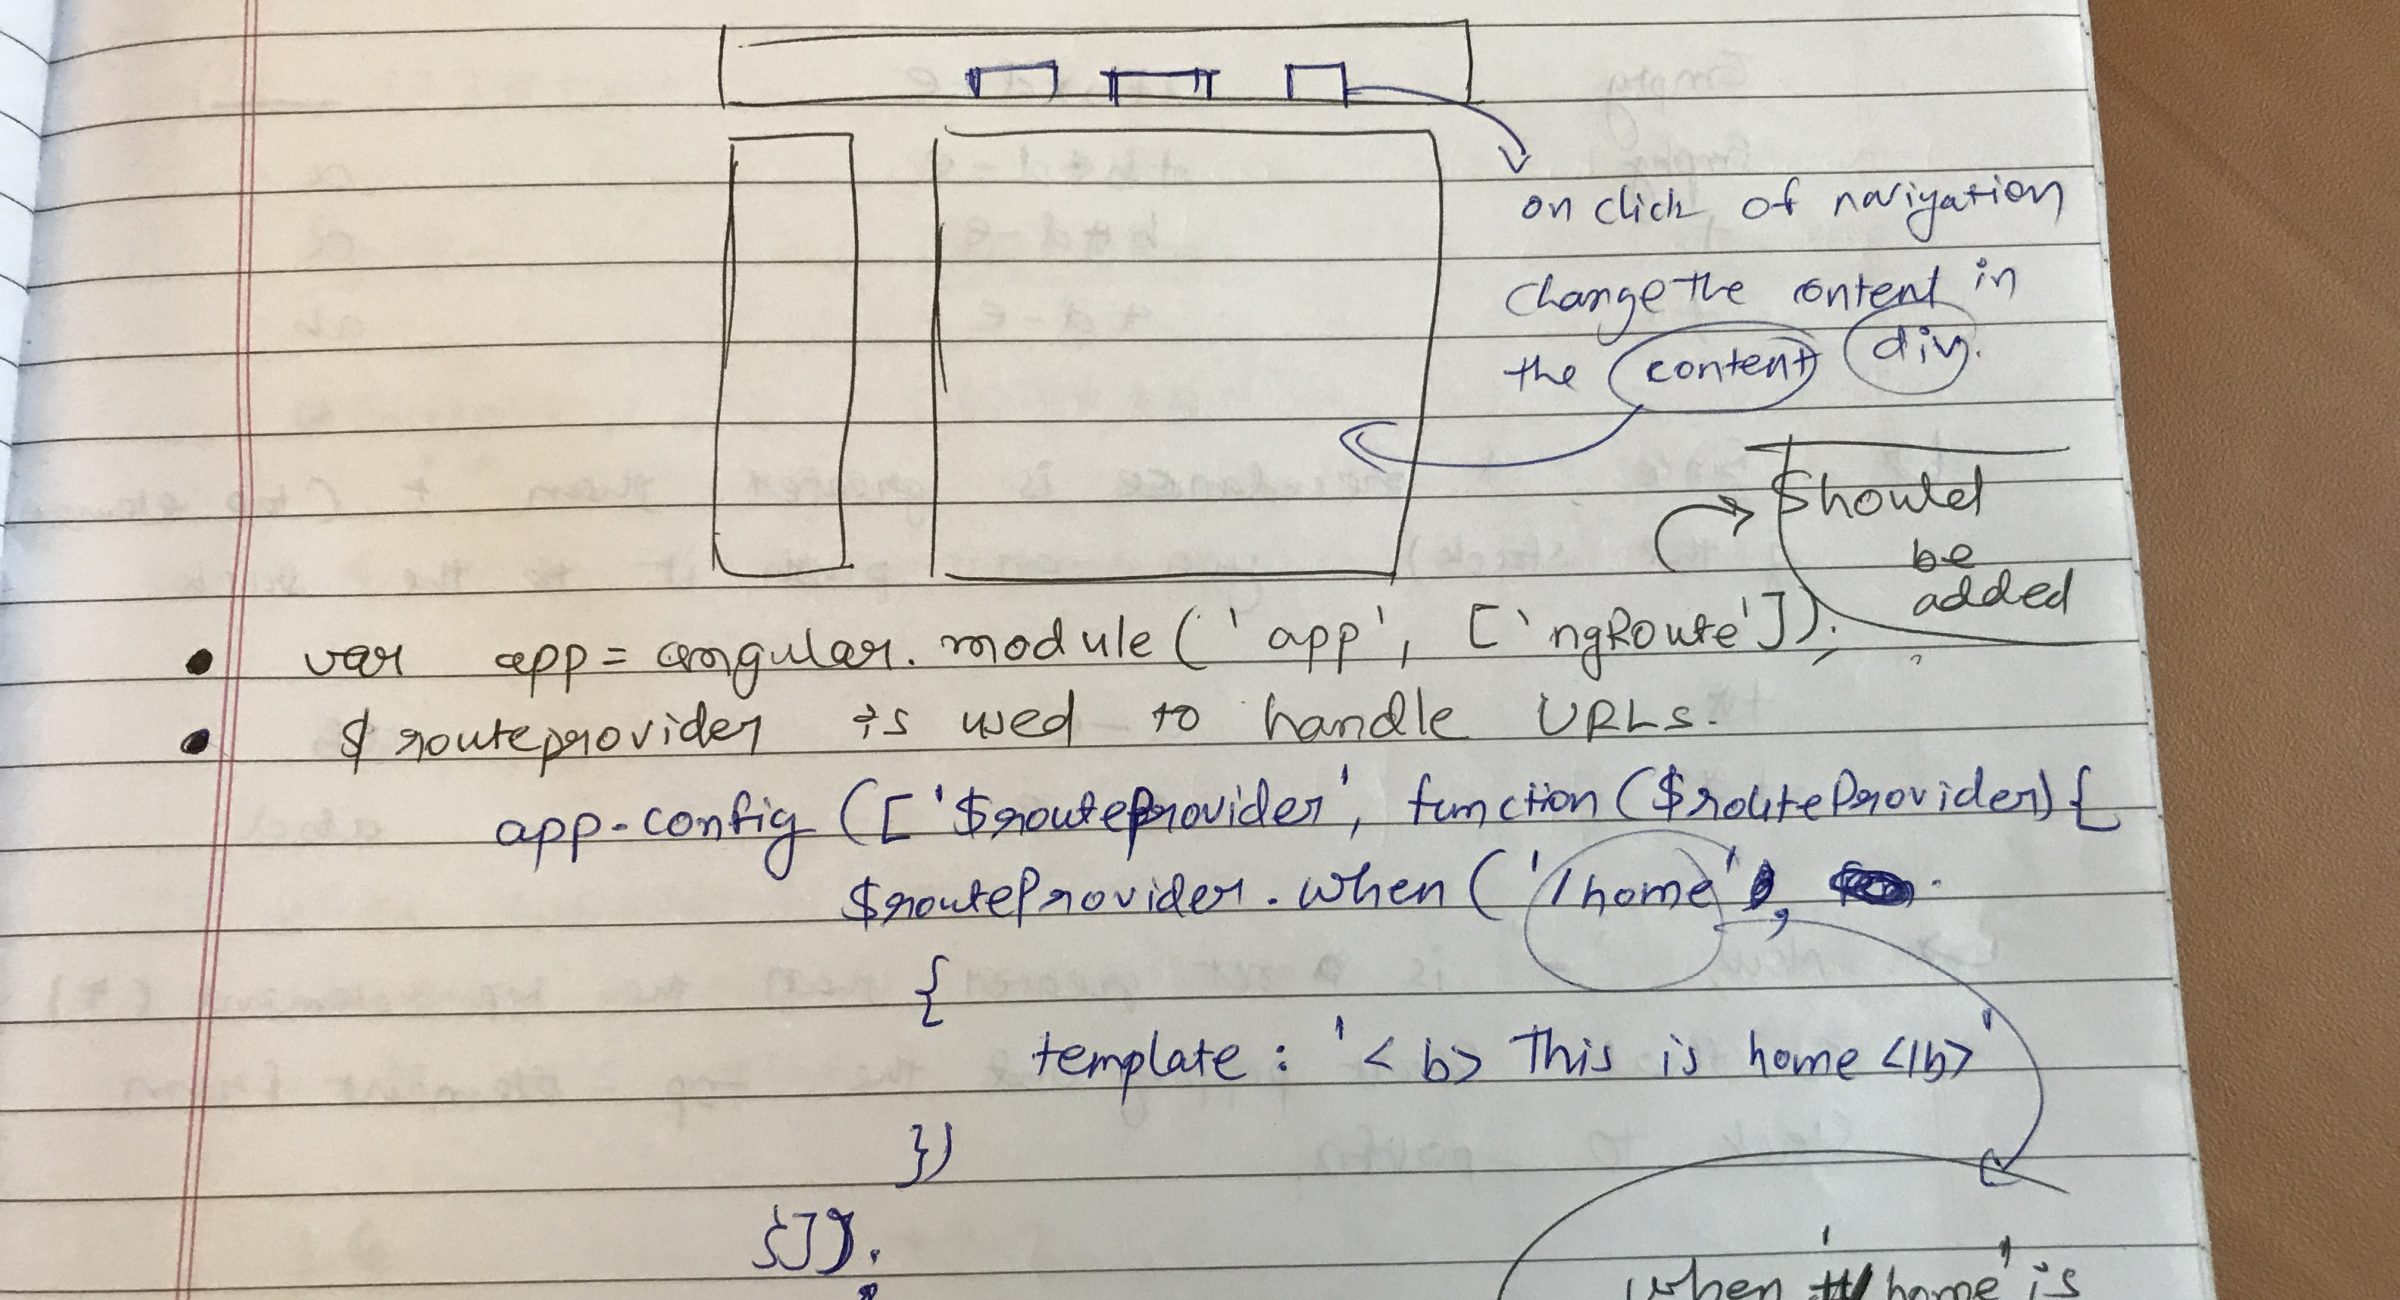 on click of navigation
change the content in
the content div.
Should
be
added
• var app = angular.module('app', ['ngRoute']);
• $routeprovider is used to handle URLs.
app.config(['$routeProvider', function($routeProvider){
$routeProvider.when('/home',
{
template: '<b> This is home </b>'
})
}]);
when #/home' is